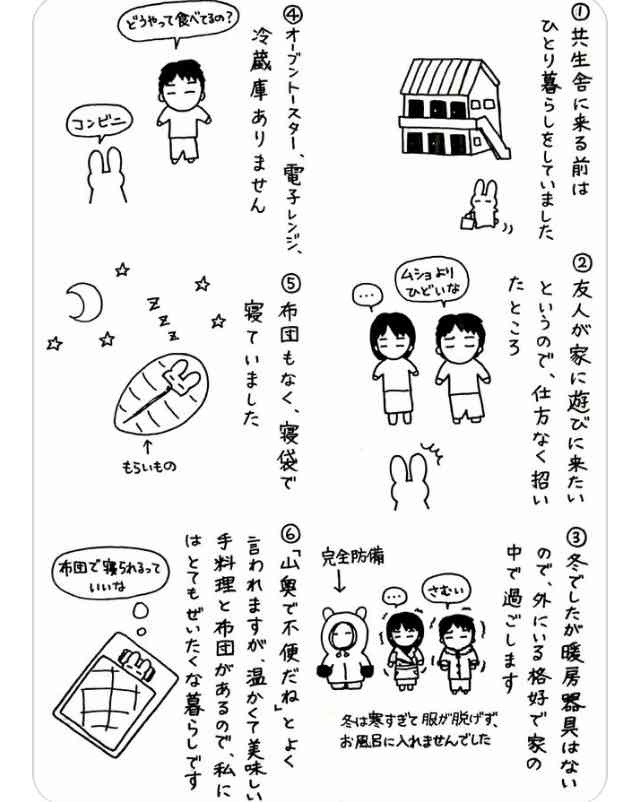 ①共生舎に来る前は
ひとり暮らしをしていました
②友人が家に遊びに来たい
というので、仕方なく招い
たところ
ムショより
ひどいな
…
③冬でしたが暖房器具はない
ので、外にいる格好で家の
中で過ごします
さむい
…
完全防備
冬は寒すぎて服が脱げず、
お風呂に入れませんでした
④オーブントースター、電子レンジ、
冷蔵庫ありません
どうやって食べてるの？
コンビニ
⑤布団もなく、寝袋で
寝ていました
z
z
z
もらいもの
⑥「山奥で不便だね」とよく
言われますが、温かくて美味しい
手料理と布団があるので、私に
はとてもぜいたくな暮らしです
布団で寝られるって
いいな